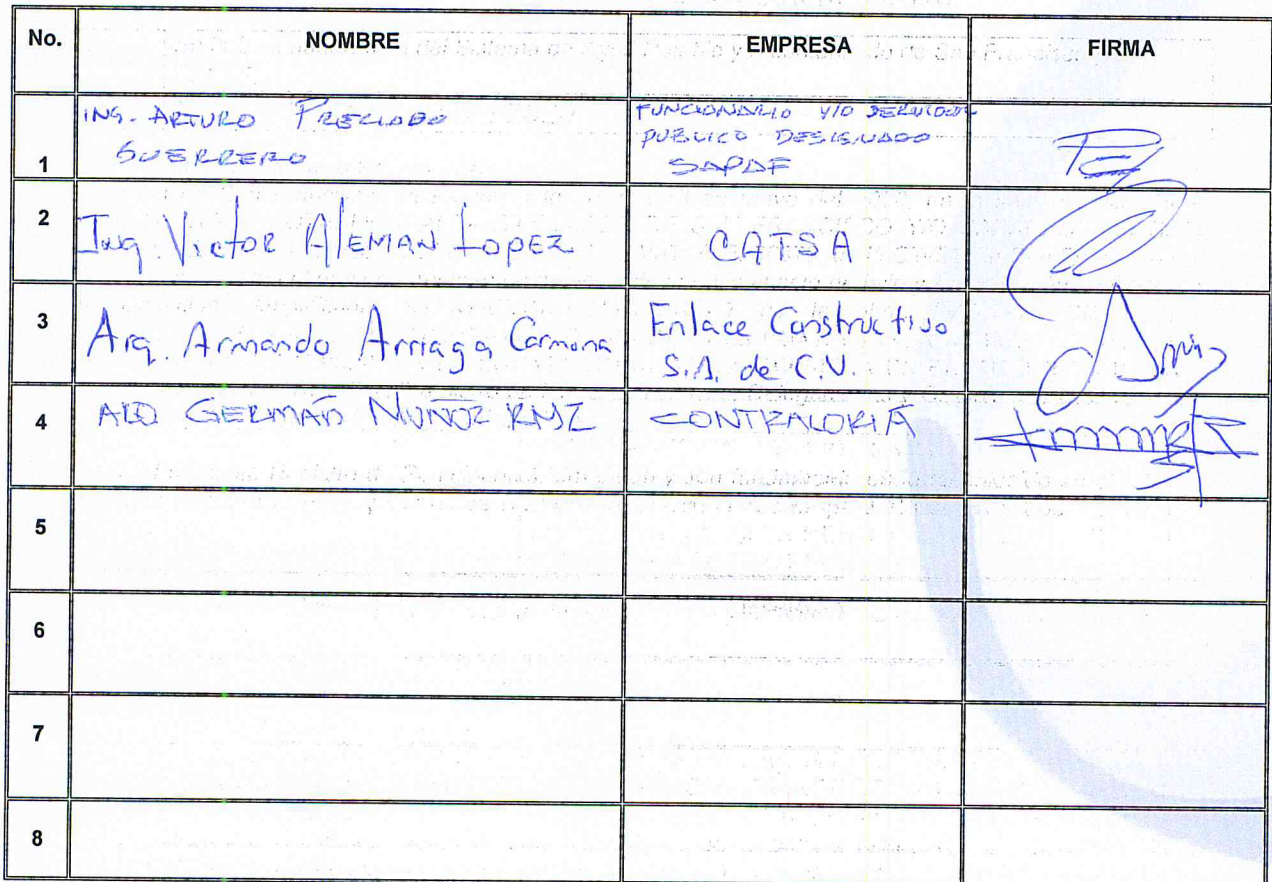 No. NOMBRE EMPRESA FIRMA
1 ING. ARTURO PRECIADO GUERRERO FUNCIONARIO Y/O SERVIDOR PUBLICO DESIGNADO SAPAF
2 Ing. Victor Aleman Lopez CATSA
3 Arq. Armando Arriaga Carmona Enlace Constructivo S.A. de C.V.
4 ARQ GERMÁN MUÑOZ RMZ CONTRALORIA
5
6
7
8